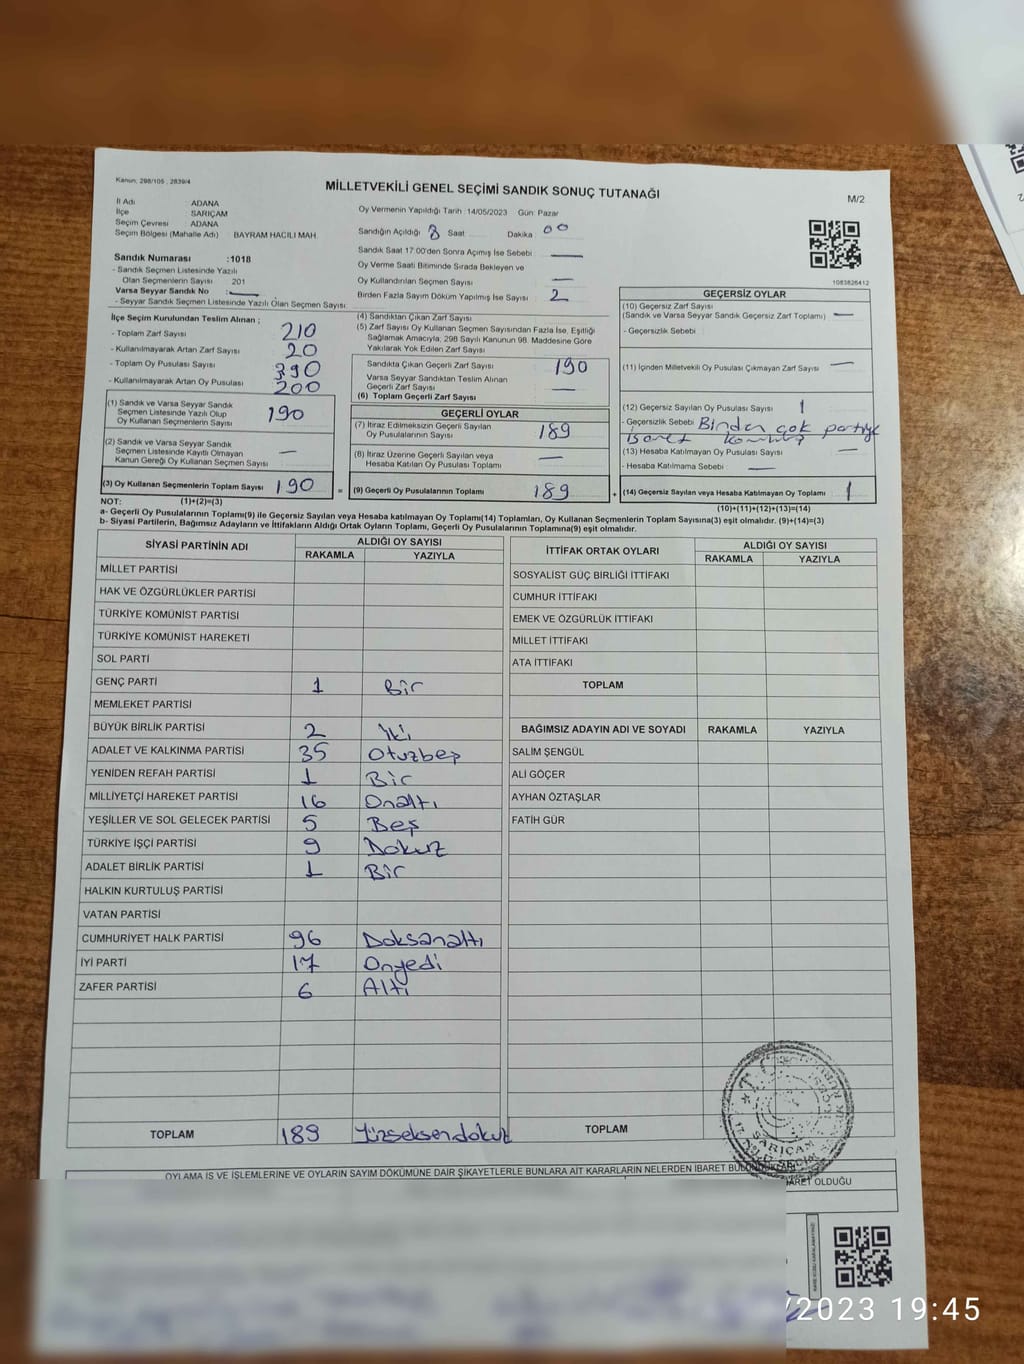 Kanun: 298/105 , 2839/4
MİLLETVEKİLİ GENEL SEÇİMİ SANDIK SONUÇ TUTANAĞI
M/2
İl Adı ADANA
İlçe SARIÇAM
Seçim Çevresi : ADANA
Seçim Bölgesi (Mahalle Adı) : BAYRAM HACILI MAH.
Sandık Numarası :1018
- Sandık Seçmen Listesinde Yazılı
Olan Seçmenlerin Sayısı 201
Varsa Seyyar Sandık No : —
- Seyyar Sandık Seçmen Listesinde Yazılı Olan Seçmen Sayısı:
Oy Vermenin Yapıldığı Tarih :14/05/2023 Gün: Pazar
Sandığın Açıldığı 8 Saat Dakika 00
Sandık Saat 17:00'den Sonra Açımış İse Sebebi —
Oy Verme Saati Bitiminde Sırada Bekleyen ve
Oy Kullandırılan Seçmen Sayısı —
Birden Fazla Sayım Döküm Yapılmış İse Sayısı 2
1083826412
İlçe Seçim Kurulundan Teslim Alınan ;
- Toplam Zarf Sayısı 210
- Kullanılmayarak Artan Zarf Sayısı 20
- Toplam Oy Pusulası Sayısı 390
- Kullanılmayarak Artan Oy Pusulası 200
(1) Sandık ve Varsa Seyyar Sandık
Seçmen Listesinde Yazılı Olup
Oy Kullanan Seçmenlerin Sayısı 190
(2) Sandık ve Varsa Seyyar Sandık
Seçmen Listesinde Kayıtlı Olmayan
Kanun Gereği Oy Kullanan Seçmen Sayısı —
(3) Oy Kullanan Seçmenlerin Toplam Sayısı 190
(4) Sandıktan Çıkan Zarf Sayısı
(5) Zarf Sayısı Oy Kullanan Seçmen Sayısından Fazla İse, Eşitliği
Sağlamak Amacıyla, 298 Sayılı Kanunun 98. Maddesine Göre
Yakılarak Yok Edilen Zarf Sayısı
Sandıkta Çıkan Geçerli Zarf Sayısı 190
Varsa Seyyar Sandıktan Teslim Alınan
Geçerli Zarf Sayısı —
(6) Toplam Geçerli Zarf Sayısı
GEÇERLİ OYLAR
(7) İtiraz Edilmeksizin Geçerli Sayılan
Oy Pusulalarının Sayısı 189
(8) İtiraz Üzerine Geçerli Sayılan veya
Hesaba Katılan Oy Pusulası Toplamı —
= (9) Geçerli Oy Pusulalarının Toplamı 189
GEÇERSİZ OYLAR
(10) Geçersiz Zarf Sayısı
(Sandık ve Varsa Seyyar Sandık Geçersiz Zarf Toplamı) —
- Geçersizlik Sebebi
(11) İçinden Milletvekili Oy Pusulası Çıkmayan Zarf Sayısı —
(12) Geçersiz Sayılan Oy Pusulası Sayısı 1
- Geçersizlik Sebebi Birden çok partiye
(13) Hesaba Katılmayan Oy Pusulası Sayısı —
- Hesaba Katılmama Sebebi —
+ (14) Geçersiz Sayılan veya Hesaba Katılmayan Oy Toplamı 1
NOT: (1)+(2)=(3) (10)+(11)+(12)+(13)=(14)
a- Geçerli Oy Pusulalarının Toplamı(9) ile Geçersiz Sayılan veya Hesaba katılmayan Oy Toplamı(14) Toplamları, Oy Kullanan Seçmenlerin Toplam Sayısına(3) eşit olmalıdır. (9)+(14)=(3)
b- Siyasi Partilerin, Bağımsız Adayların ve İttifakların Aldığı Ortak Oyların Toplamı, Geçerli Oy Pusulalarının Toplamına(9) eşit olmalıdır.
SİYASİ PARTİNİN ADI ALDIĞI OY SAYISI
RAKAMLA YAZIYLA
MİLLET PARTİSİ
HAK VE ÖZGÜRLÜKLER PARTİSİ
TÜRKİYE KOMÜNİST PARTİSİ
TÜRKİYE KOMÜNİST HAREKETİ
SOL PARTİ
GENÇ PARTİ 1 Bir
MEMLEKET PARTİSİ
BÜYÜK BİRLİK PARTİSİ 2 İki
ADALET VE KALKINMA PARTİSİ 35 Otuzbeş
YENİDEN REFAH PARTİSİ 1 Bir
MİLLİYETÇİ HAREKET PARTİSİ 16 Onaltı
YEŞİLLER VE SOL GELECEK PARTİSİ 5 Beş
TÜRKİYE İŞÇİ PARTİSİ 9 Dokuz
ADALET BİRLİK PARTİSİ 1 Bir
HALKIN KURTULUŞ PARTİSİ
VATAN PARTİSİ
CUMHURİYET HALK PARTİSİ 96 Doksanaltı
İYİ PARTİ 17 Onyedi
ZAFER PARTİSİ 6 Altı
TOPLAM 189 Yüzseksendokuz
İTTİFAK ORTAK OYLARI ALDIĞI OY SAYISI
RAKAMLA YAZIYLA
SOSYALİST GÜÇ BİRLİĞİ İTTİFAKI
CUMHUR İTTİFAKI
EMEK VE ÖZGÜRLÜK İTTİFAKI
MİLLET İTTİFAKI
ATA İTTİFAKI
TOPLAM
BAĞIMSIZ ADAYIN ADI VE SOYADI RAKAMLA YAZIYLA
SALİM ŞENGÜL
ALİ GÖÇER
AYHAN ÖZTAŞLAR
FATİH GÜR
TOPLAM
T.C.
SARIÇAM
OYLAMA İŞ VE İŞLEMLERİNE VE OYLARIN SAYIM DÖKÜMÜNE DAİR ŞİKAYETLERLE BUNLARA AİT KARARLARIN NELERDEN İBARET
OLDUĞU
/2023 19:45